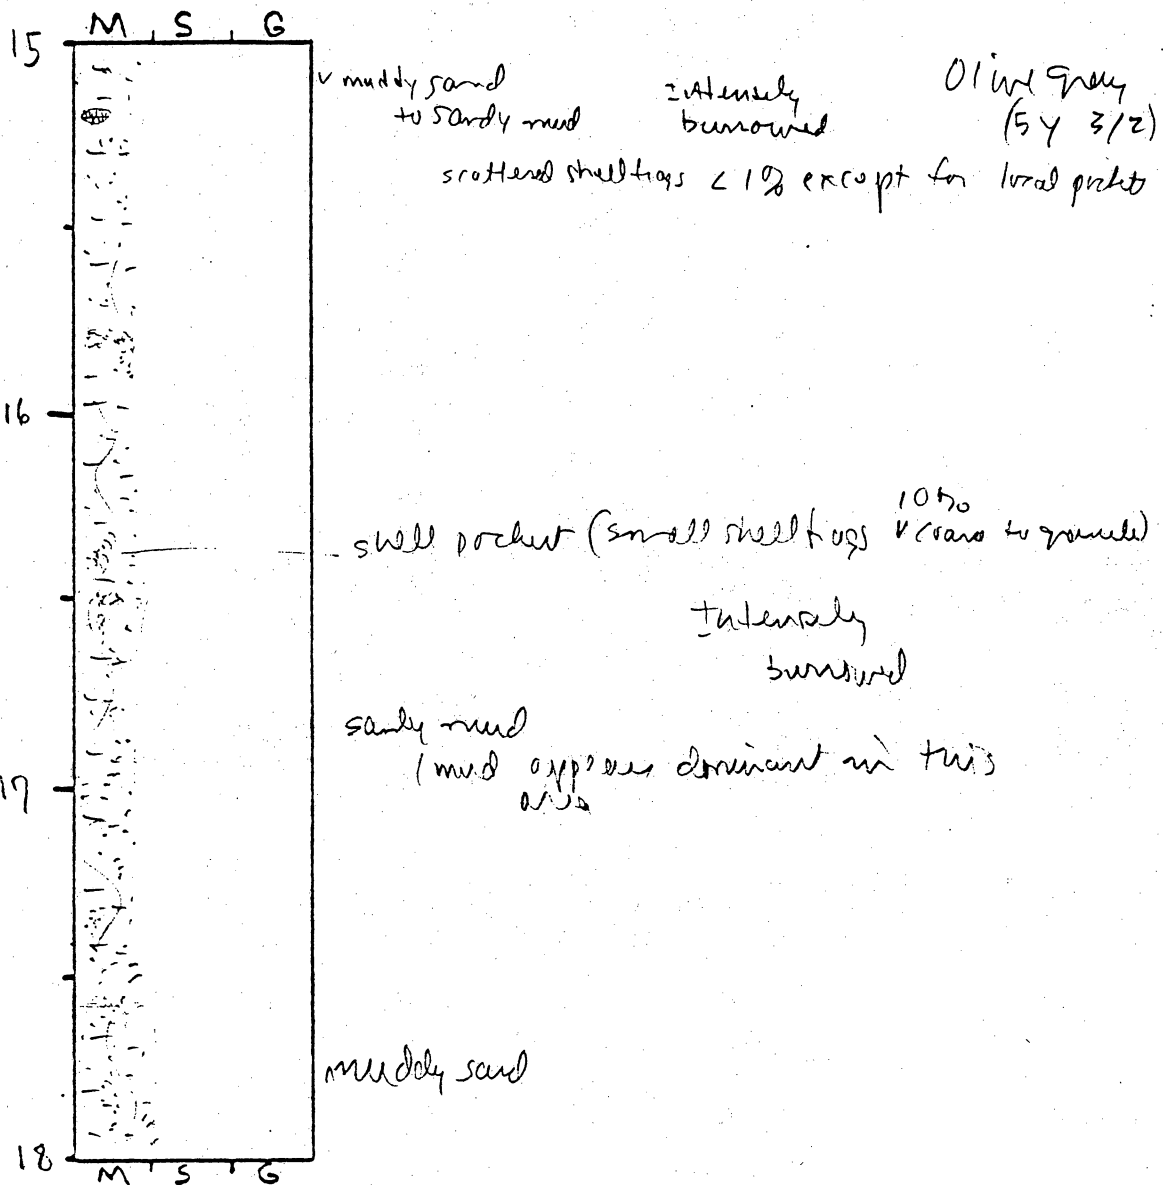 M S G
15
v muddy sand
to sandy mud
± intensely
burrowed
Olive gray
(5Y 3/2)
scattered shell frags < 1% except for local pockets
16
shell pocket (small shell frags v coarse to granule)
10%
± intensely
burrowed
sandy mud
(mud appears dominant in this
area
17
muddy sand
18
M S G